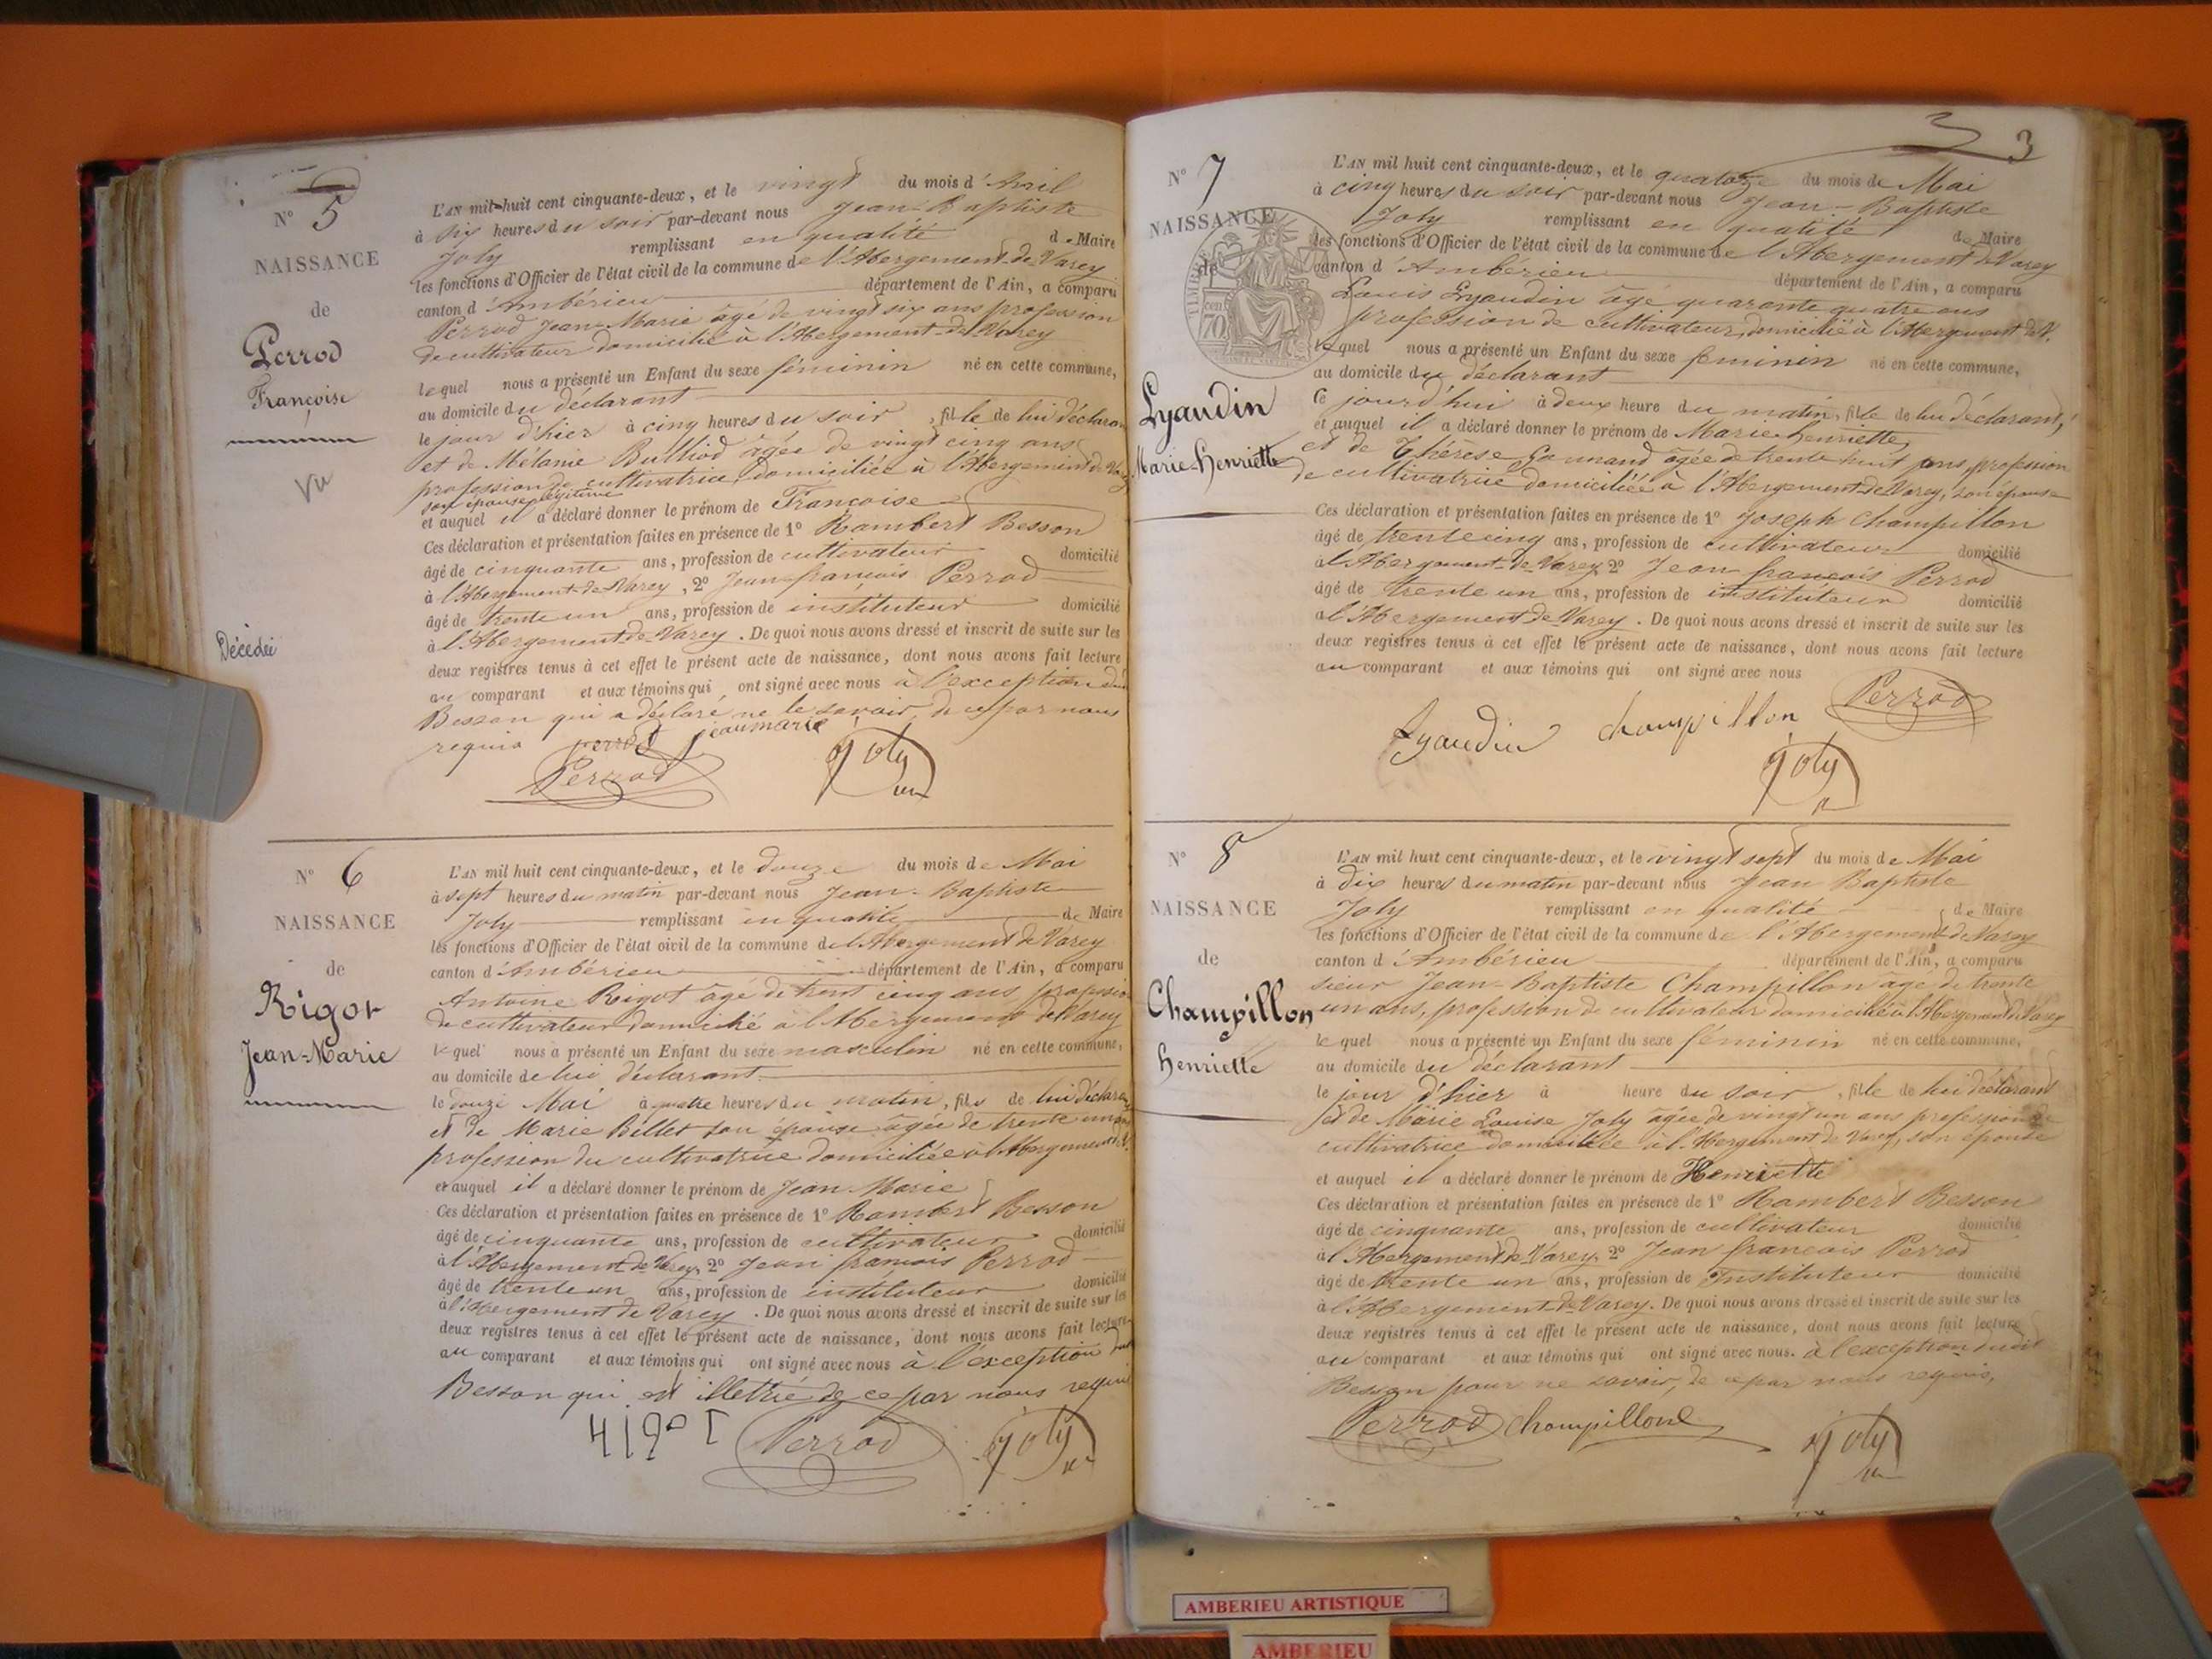 N° 5
NAISSANCE
de
Perrod
Françoise
Vu
Décédée
L'AN mil huit cent cinquante-deux, et le vingt du mois d'Avril
à six heures du soir par-devant nous Jean-Baptiste
Joly remplissant en qualité de Maire
les fonctions d'Officier de l'état civil de la commune de l'Abergement-de-Varey
canton d'Ambérieu département de l'Ain, a comparu
Perrod Jean-Marie âgé de vingt six ans profession
de cultivateur domicilié à l'Abergement-de-Varey
lequel nous a présenté un Enfant du sexe féminin né en cette commune,
au domicile du déclarant
le jour d'hier à cinq heures du soir, fille de lui déclarant
et de Mélanie Bulliod âgée de vingt cinq ans
profession de cultivatrice, domiciliée à l'Abergement de Varey
son épouse légitime
et auquel il a déclaré donner le prénom de Françoise
Ces déclaration et présentation faites en présence de 1° Rambert Besson
âgé de cinquante ans, profession de cultivateur domicilié
à l'Abergement-de-Varey, 2° Jean-françois Perrod
âgé de trente un ans, profession de instituteur domicilié
à l'Abergement-de-Varey. De quoi nous avons dressé et inscrit de suite sur les
deux registres tenus à cet effet le présent acte de naissance, dont nous avons fait lecture
au comparant et aux témoins qui ont signé avec nous à l'exception du
Besson qui a déclaré ne le savoir, de ce par nous
requis perrod jean marie
Perrod Joly
N° 6
NAISSANCE
de
Rigot
Jean-Marie
L'AN mil huit cent cinquante-deux, et le douze du mois de Mai
à sept heures du matin par-devant nous Jean-Baptiste
Joly remplissant en qualité de Maire
les fonctions d'Officier de l'état civil de la commune de l'Abergement de Varey
canton d'Ambérieu département de l'Ain, a comparu
Antoine Rigot âgé de trent cinq ans profession
de cultivateur domicilié à l'Abergement de Varey
lequel nous a présenté un Enfant du sexe masculin né en cette commune,
au domicile de lui déclarant
le douze Mai à quatre heures du matin, fils de lui déclarant
et de Marie Billet son épouse âgée de trente un ans
profession de cultivatrice domiciliée à l'Abergement de V.
et auquel il a déclaré donner le prénom de Jean Marie
Ces déclaration et présentation faites en présence de 1° Rambert Besson
âgé de cinquante ans, profession de cultivateur domicilié
à l'Abergement-de-Varey, 2° Jean françois Perrod
âgé de trente un ans, profession de instituteur domicilié
à l'Abergement de Varey. De quoi nous avons dressé et inscrit de suite sur les
deux registres tenus à cet effet le présent acte de naissance, dont nous avons fait lecture
au comparant et aux témoins qui ont signé avec nous à l'exception
Besson qui est illettré de ce par nous requis
Perrod Joly
3
N° 7
NAISSANCE
de
TIMBRE
70
Lyaudin
Marie Henriette
L'AN mil huit cent cinquante-deux, et le quatorze du mois de Mai
à cinq heures du soir par-devant nous Jean-Baptiste
Joly remplissant en qualité de Maire
les fonctions d'Officier de l'état civil de la commune de l'Abergement de Varey
canton d'Ambérieu département de l'Ain, a comparu
Louis Lyaudin âgé quarente quatre ans
profession de cultivateur, domicilié à l'Abergement de V.
lequel nous a présenté un Enfant du sexe féminin né en cette commune,
au domicile du déclarant
Ce jourd'hui à deux heure du matin, fille de lui déclarant,
et auquel il a déclaré donner le prénom de Marie henriette
et de Thérèse âgée de trente huit ans, profession
de cultivatrice domiciliée à l'Abergement-de-Varey, son épouse
Ces déclaration et présentation faites en présence de 1° Joseph Champillon
âgé de trente cinq ans, profession de cultivateur domicilié
à l'Abergement-de-Varey 2° Jean françois Perrod
âgé de trente un ans, profession de instituteur domicilié
à l'Abergement de Varey. De quoi nous avons dressé et inscrit de suite sur les
deux registres tenus à cet effet le présent acte de naissance, dont nous avons fait lecture
au comparant et aux témoins qui ont signé avec nous
Lyaudin Champillon Perrod
Joly
N° 8
NAISSANCE
de
Champillon
Henriette
L'AN mil huit cent cinquante-deux, et le vingt sept du mois de Mai
à dix heures du matin par-devant nous Jean Baptiste
Joly remplissant en qualité de Maire
les fonctions d'Officier de l'état civil de la commune de l'Abergement de Varey
canton d'Ambérieu département de l'Ain, a comparu
sieur Jean-Baptiste Champillon âgé de trente
un ans, profession de cultivateur domicilié à l'Abergement de Varey
lequel nous a présenté un Enfant du sexe féminin né en cette commune,
au domicile du déclarant
le jour d'hier à heure du soir, fille de lui déclarant
et de Marie Louise Joly âgée de vingt un ans profession de
cultivatrice domiciliée à l'Abergement de Varey, son épouse
et auquel il a déclaré donner le prénom de Henriette
Ces déclaration et présentation faites en présence de 1° Rambert Besson
âgé de cinquante ans, profession de cultivateur domicilié
à l'Abergement de Varey, 2° Jean françois Perrod
âgé de trente un ans, profession de Instituteur domicilié
à l'Abergement-de-Varey. De quoi nous avons dressé et inscrit de suite sur les
deux registres tenus à cet effet le présent acte de naissance, dont nous avons fait lecture
au comparant et aux témoins qui ont signé avec nous. à l'exception dudit
Besson pour ne savoir, de ce par nous requis,
Perrod Champillone Joly
AMBERIEU ARTISTIQUE
AMBERIEU